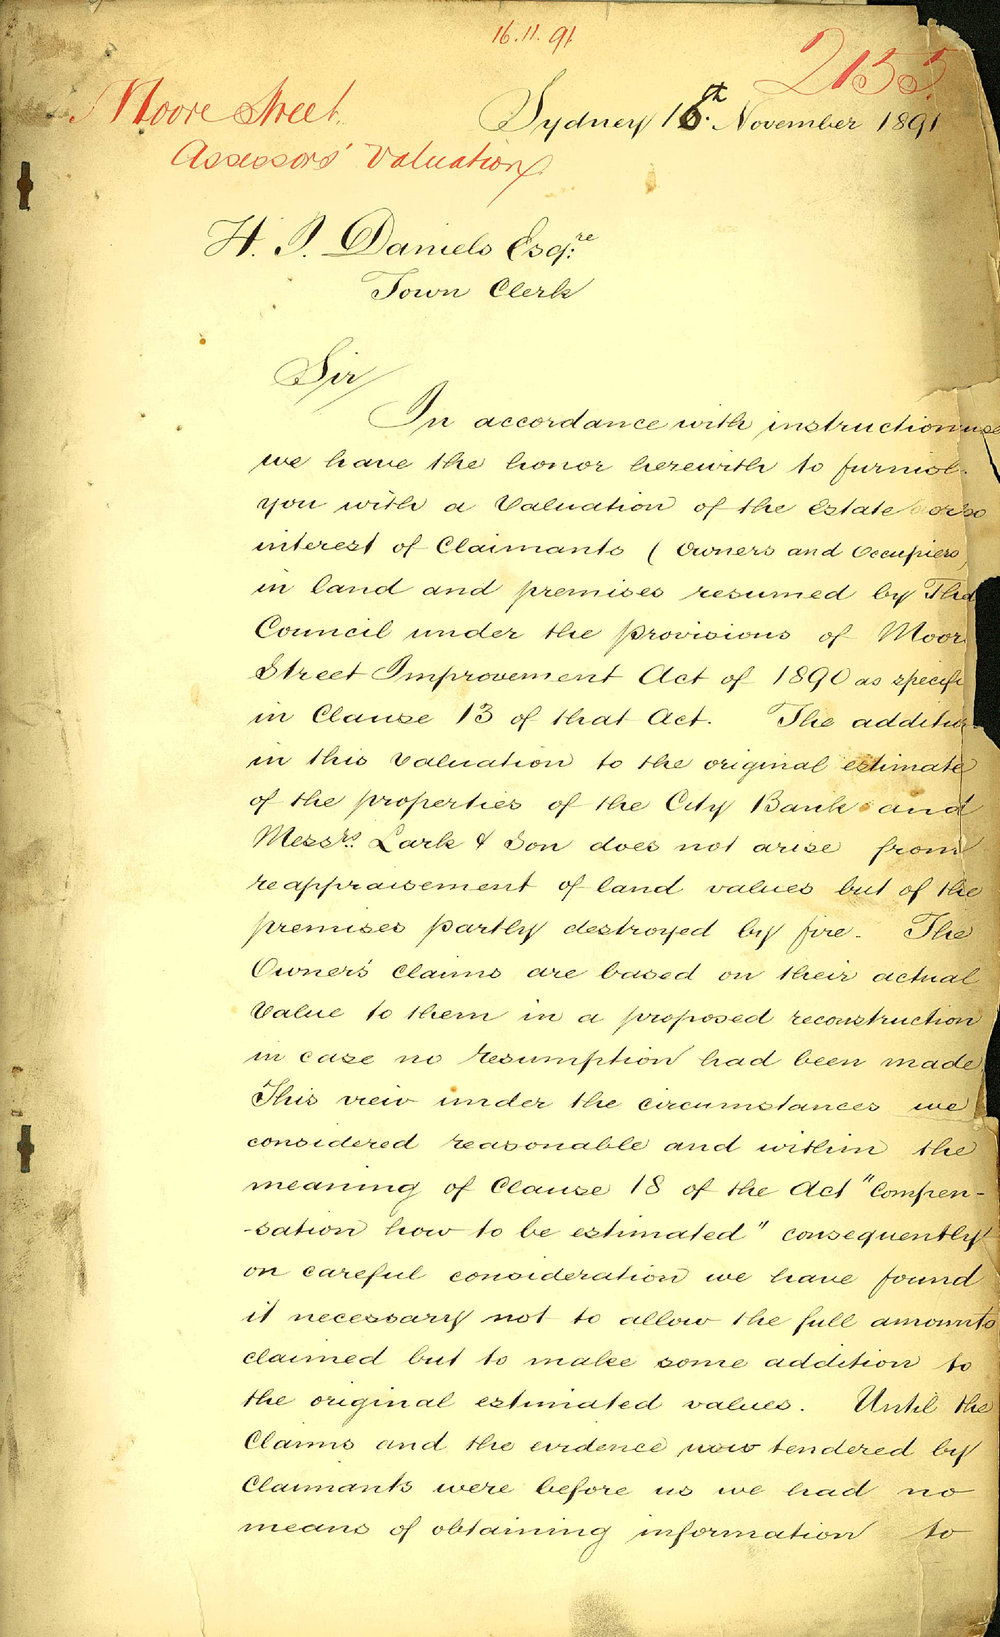 16.11.91
2155
Moore Street
Sydney 16th November 1891
Assessors' Valuation
H. J. Daniels Esqre
Town Clerk
Sir
In accordance with instructions
we have the honor herewith to furnish
you with a Valuation of the Estate or
interest of Claimants (Owners and Occupiers)
in land and premises resumed by The
Council under the provisions of Moore
Street Improvement Act of 1890 as specifi
in Clause 13 of that Act. The addition
in this Valuation to the original estimate
of the properties of the City Bank and
Messrs. Lark & Son does not arise from
reappraisement of land values but of the
premises partly destroyed by fire. The
Owners' claims are based on their actual
Value to them in a proposed reconstruction
in case no resumption had been made
This view under the circumstances we
considered reasonable and within the
meaning of Clause 18 of the Act "Compen-
-sation how to be estimated" consequently
on careful consideration we have found
it necessary not to allow the full amounts
claimed but to make some addition to
the original estimated values. Until the
Claims and the evidence now tendered by
Claimants were before us we had no
means of obtaining information to